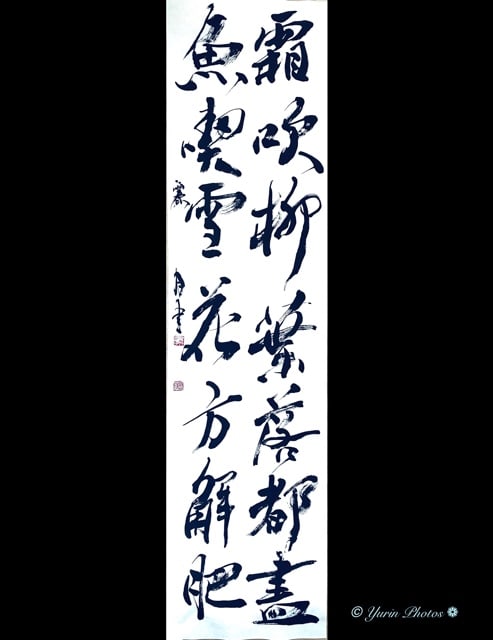 霜吹柳葉落都盡
魚喫雪花方解肥
© Yurin Photos